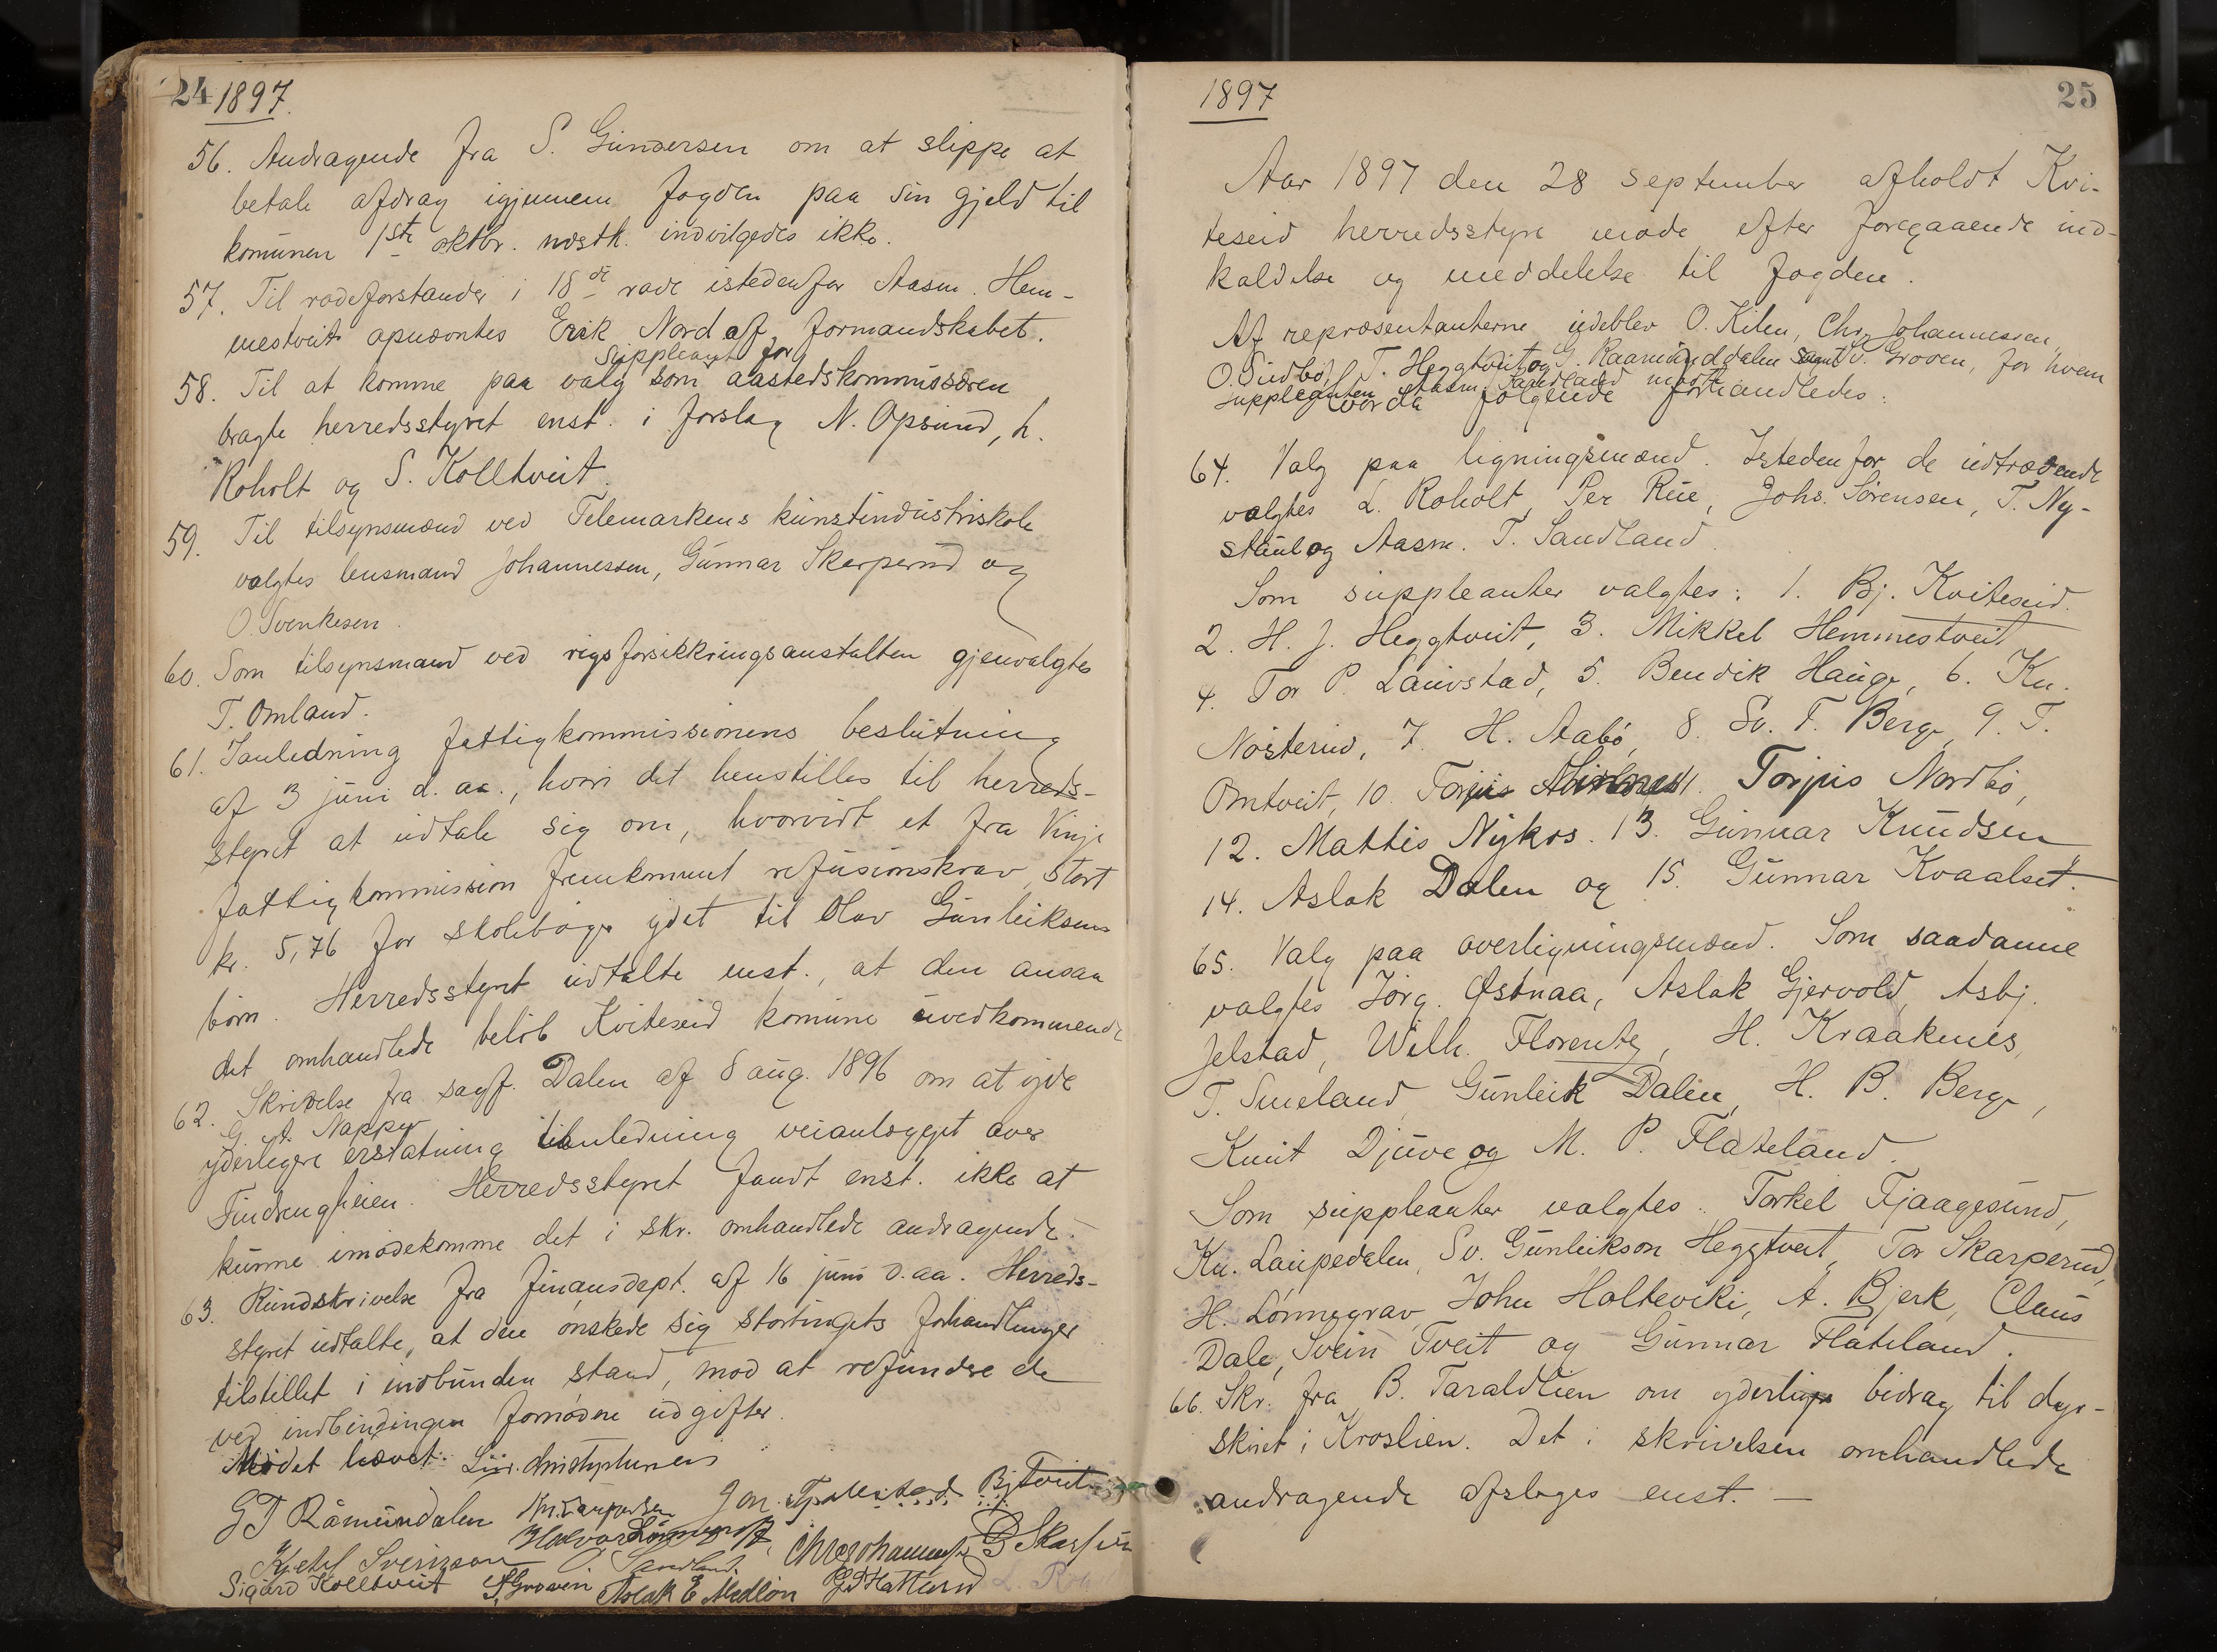 24 1897.
56. Andragende fra S. Gundersen om at slippe at
betale afdrag igjennem fogden paa sin gjeld til
komunen 1ste oktbr. næstk. indvilgedes ikke.
57. Til rodeforstander i 18de rode istedenfor Aasm. Hem-
mestveit opnævntes Erik Nord af formandskabet.
suppleant for
58. Til at komme paa valg som aastedskommissæren
bragte herredsstyret enst. i forslag N. Opsund, h.
Roholt og S. Kolltveit.
59. Til tilsynsmænd ved Telemarkens kunstindustriskole
valgtes lensmand Johannessen, Gunnar Skarperud og
O. Svenkesen.
60. Som tilsynsmand ved rigsforsikkringsanstalten gjenvalgtes
T. Omland.
61. I anledning fattigkommissionens beslutning
af 3 juni d. aa., hvori det henstilles til herreds-
styret at udtale sig om, hvorvidt et fra Vinje
fattigkommission fremkommet refusionskrav, stort
kr. 5,76 for skolebøger ydet til Olav Gunleiksens
børn. Herredsstyret udtalte enst., at den ansaa
det omhandlede beløb Kviteseid komune uvedkommende
62. Skrivelse fra sagf. Dalen af 8 aug. 1896 om at yde
G. A. Napper
yderligere erstatning i anledning veianlægget over
Findrengheien. Herredsstyret fandt enst. ikke at
kunne imødekomme det i skr. omhandlede andragende.
63. Rundskrivelse fra finansdept. af 16 juni d. aa. Herreds-
styret udtalte, at den ønskede sig stortingets forhandlinger
tilstillet i indbunden stand, mod at refundere de
ved indbindingen fornødne udgifter.
Mødet hævet.
G T Råmundalen Bj Tveit
Halvor Lønnegrav Chr Johannessen
Kjetil Sveinson O. Sandland.
Sigurd Kolltveit S. Groven Aslak E Medlien
1897 25
Aar 1897 den 28 september afholdt Kvi-
teseid herredsstyre møde efter foregaaende ind-
kaldelse og meddelelse til fogden.
Af repræsentanterne udeblev O. Kilen, Chr. Johannessen,
O. Sudbø, T. Heggtveit og G. Raamunddalen samt Sv. Groven, for hvem
suppleanten Aasm. Sandland mødte.
hvorda følgende forhandledes:
64. Valg paa ligningsmænd. Istedenfor de udtrædende
valgtes L. Roholt, Per Rue, Johs. Sørensen, T. Ny-
staul og Aasm. T. Sandland.
Som suppleanter valgtes: 1. Bj. Kviteseid.
2. H. J. Heggtveit, 3. Mikkel Hemmestveit
4. Tor P. Lauvstad, 5. Bendik Hauge, 6. Kn.
Nøsterud, 7. H. Aabø, 8. Sv. T. Berge, 9. T.
Omtveit, 10. Torjus 11. Torjus Nordbø,
12. Mattis Nykos. 13. Gunnar Knudsen
14. Aslak Dalen og 15. Gunnar Kvaalset.
65. Valg paa overligningsmænd. Som saadanne
valgtes Jørg. Østnaa, Aslak Gjervold, Asbj.
Jelstad, Wilh. Florentz, H. Kraaknes,
T. Smeland, Gunleik Dalen, H. B. Berge,
Knut Djuve og M. P. Flateland.
Som suppleanter valgtes: Torkel Fjaagesund,
Kn. Laupedalen, Sv. Gunleikson Heggtveit, Tor Skarperud,
H. Lønnegrav, John Holteviki, A. Bjerk, Claus
Dale, Svein Tveit og Gunnar Flateland.
66. Skr. fra B. Taraldlien om yderligere bidrag til dyr-
skuet i Kroslien. Det i skrivelsen omhandlede
andragende afsloges enst. —